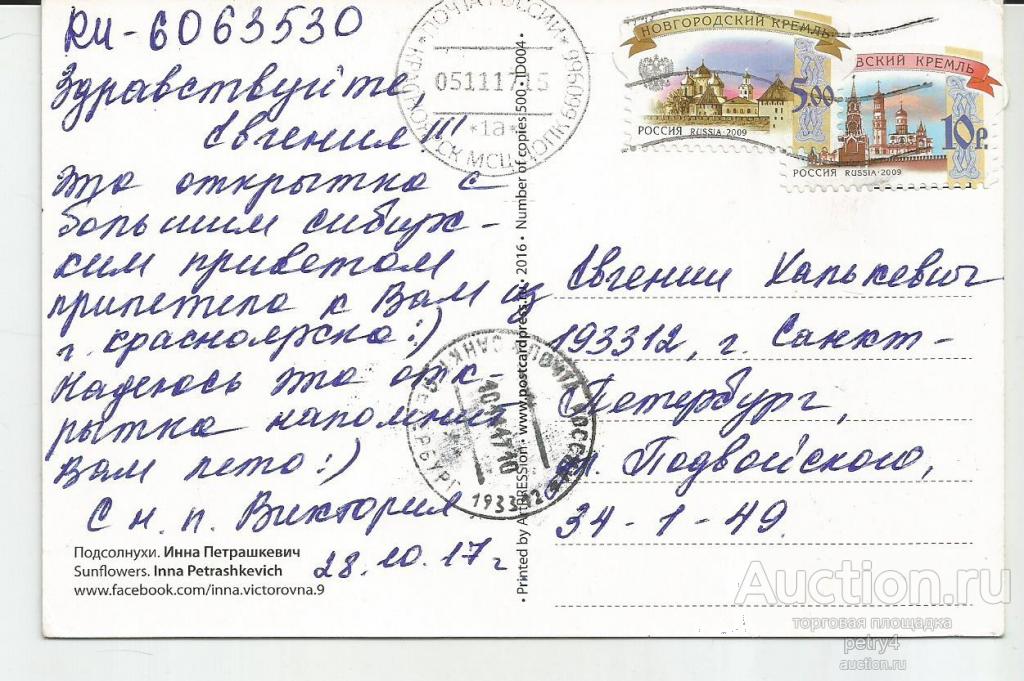 RU-6063530
Здравствуйте,
Евгения!!!
Эта открытка с
большим сибирс-
ким приветом
прилетела к Вам из
г. Красноярска:)
Надеюсь эта отк-
рытка напомнит
Вам лето:)
С н. п. Виктория
28.10.17г
Подсолнухи. Инна Петрашкевич
Sunflowers. Inna Petrashkevich
www.facebook.com/inna.victorovna.9
ПОЧТА РОССИИ
660966
КРАСНОЯРСК МСЦ
051117 15
*1а*
• Printed by ArtPRESSion • www.postcardpress.ru • 2016 • Number of copies 500 • 10004 •
НОВГОРОДСКИЙ КРЕМЛЬ
5.00
РОССИЯ RUSSIA · 2009
ВСКИЙ КРЕМЛЬ
10 р.
РОССИЯ RUSSIA · 2009
Евгении Халькевич
193312, г. Санкт-
Петербург,
ул. Подвойского,
34-1-49.
ПОЧТА РОССИИ
САНКТ
193312
Auction.ru
торговая площадка
petry4
auction.ru